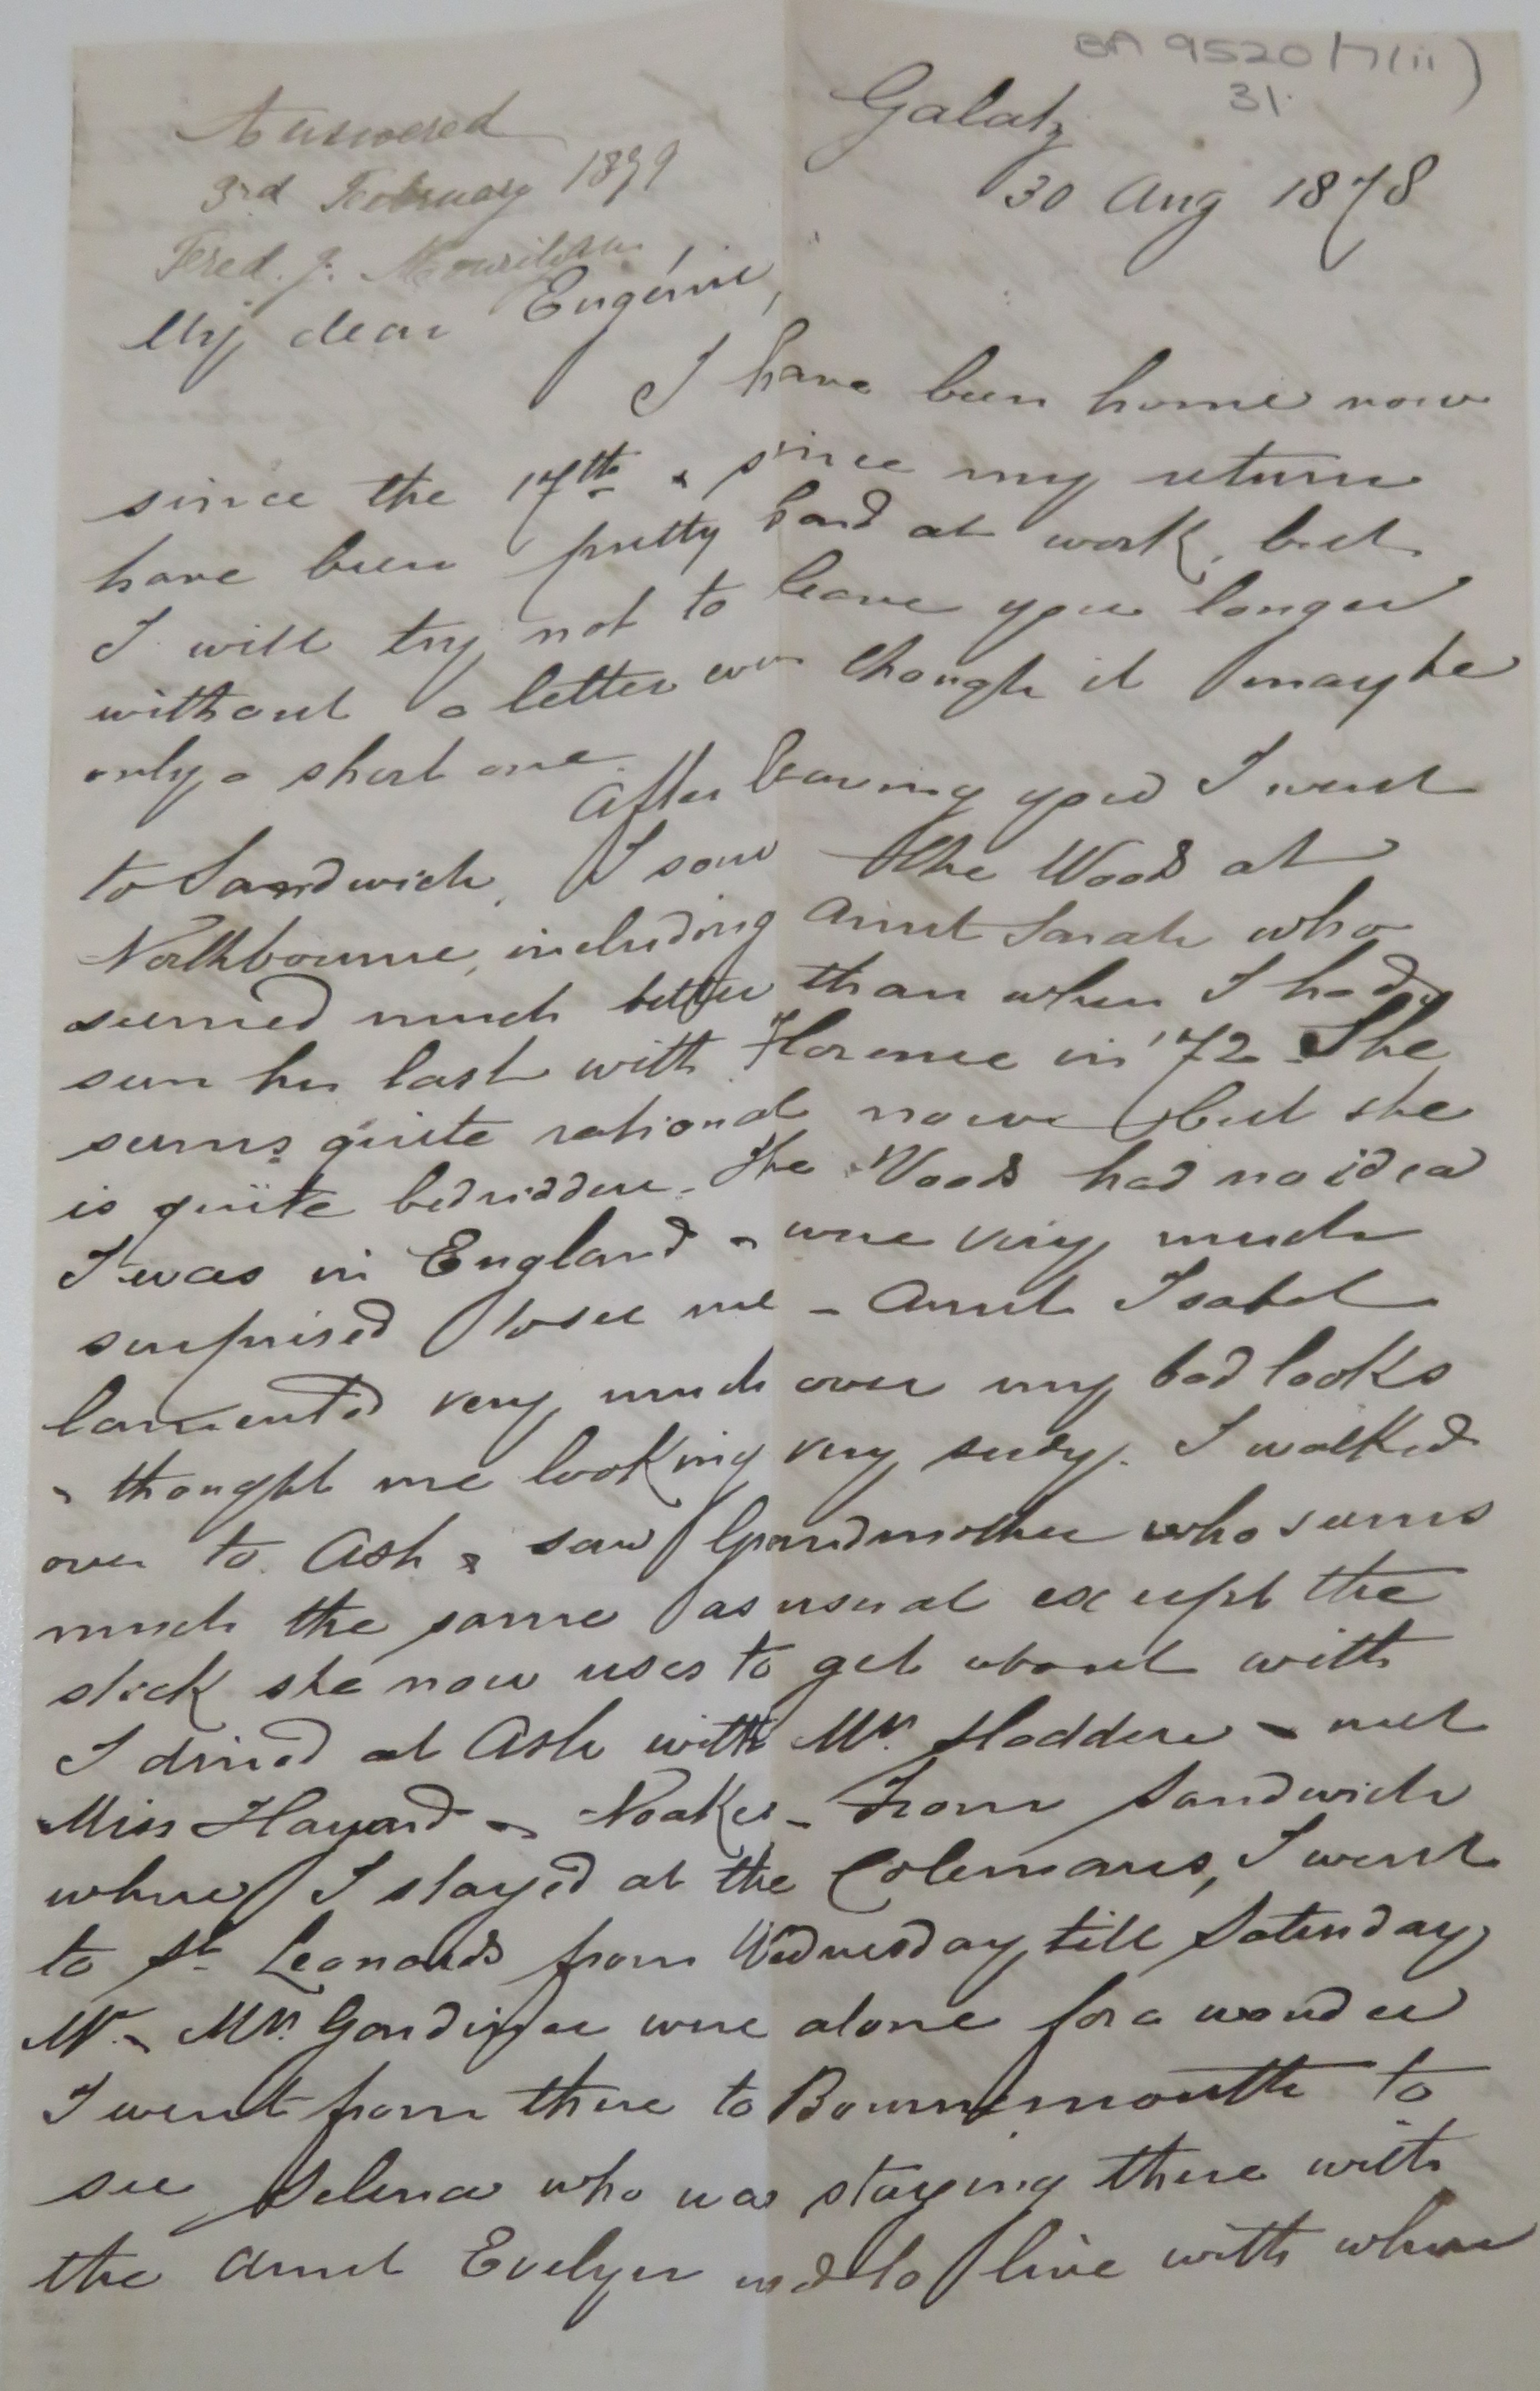 BA 9520/7(ii)
31.
Answered
3rd February 1879
Fred. J.
Galatz
30 Aug 1878
My dear Eugénie,
I have been home now
since the 17th & since my return
have been pretty hard at work, but
I will try not to leave you longer
without a letter even though it may be
only a short one.
After leaving you I went
to Sandwich, I saw the Woods at
Northbourne, including Aunt Sarah who
seemed much better than when I had
seen her last with Florence in '72 She
seems quite rational now but she
is quite bedridden - The Woods had no idea
I was in England & were very much
surprised to see me - Aunt Isabel
lamented very much over my bad looks
& thought me looking very seedy. I walked
over to Ash & saw Grandmother who seems
much the same as usual except the
stick she now uses to get about with
I dined at Ash with Mrs. Hodden & met
Miss Hayward & Noakes - From Sandwich
where I stayed at the Colemans, I went
to St Leonards from Wednesday till Saturday
Mr. & Mrs. were alone for a wonder
I went from there to Bournemouth to
see Selena who was staying there with
the Aunt Evelyn used to live with when